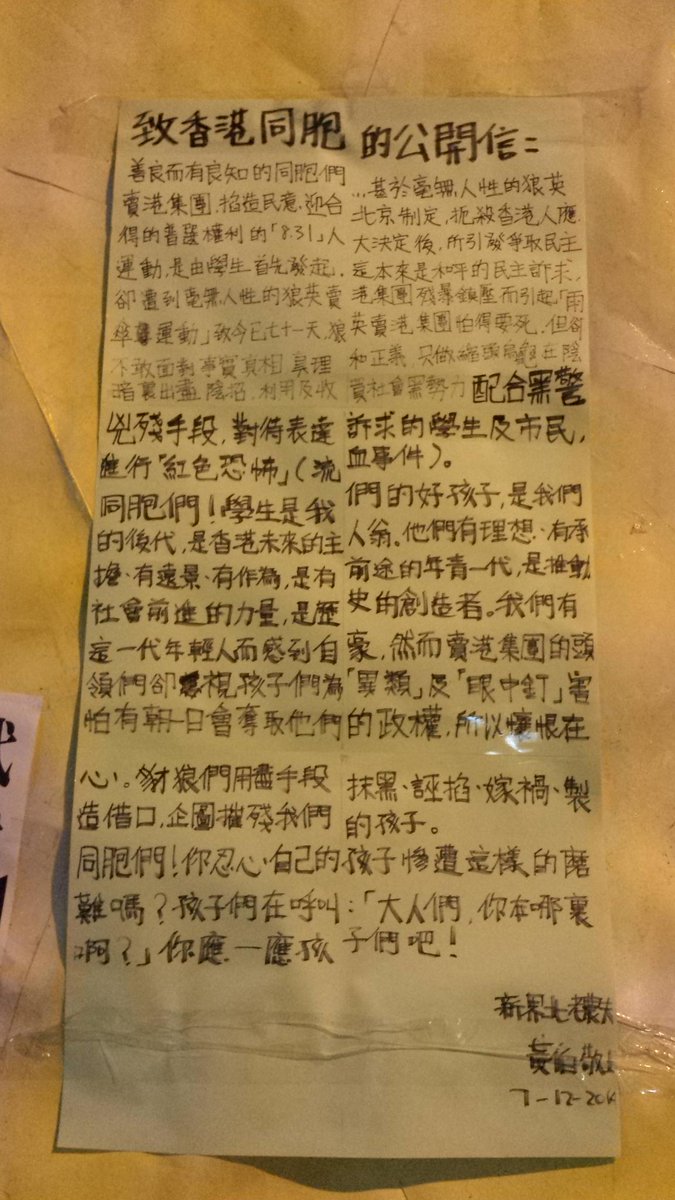 致香港同胞的公開信:
善良而有良知的同胞們...基於毫無人性的狼英
賣港集團,掐造民意,迎合北京制定,扼殺香港人應
得的普選權利的「8.31」人大決定後,所引發爭取民主
運動,是由學生首先發起,這本來是和平的民主訴求,
卻遭到毫無人性的狼英賣港集團残暴鎮壓而引起「雨
傘運動」致今已七十一天,狼英賣港集團怕得要死,但卻
不敢面對事實真相 真理和正義,只做縮頭烏龜在陰
暗裏出盡陰招,利用及收買社會黑勢力配合黑警
兇残手段,對待表達訴求的學生及市民,
進行「紅色恐怖」(流血事件)。
同胞們!學生是我們的好孩子,是我們
的後代,是香港未來的主人翁。他們有理想、有承
擔、有遠景、有作為,是有前途的年青一代,是推動
社會前進的力量,是歷史的創造者。我們有
這一代年輕人而感到自豪,然而賣港集團的頭
領們卻視孩子們為「異類」及「眼中釘」害
怕有朝一日會奪取他們的政權,所以懷恨在
心。豺狼們用盡手段抹黑、誣掐、嫁禍、製
造借口,企圖摧残我們的孩子。
同胞們!你忍心自己的孩子慘遭這樣的磨
難嗎?孩子們在呼叫:「大人們,你在哪裏
啊?」你應一應孩子們吧!
新界北老農夫
黃伯敬上
7-12-20